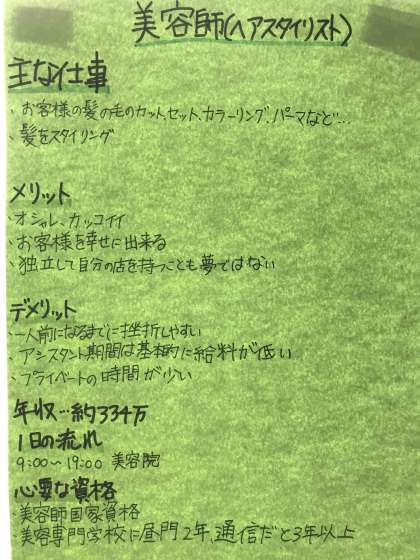 美容師(ヘアスタイリスト)
主な仕事
・お客様の髪の毛のカット、セット、カラーリング、パーマなど…
・髪をスタイリング
メリット
・オシャレ、カッコイイ
・お客様を幸せに出来る
・独立して自分の店を持つことも夢ではない
デメリット
・一人前になるまでに挫折しやすい
・アシスタント期間は基本的に給料が低い
・プライベートの時間が少い
年収…約334万
1日の流れ
9:00〜19:00 美容院
必要な資格
・美容師国家資格
・美容専門学校に昼門2年、通信だと3年以上